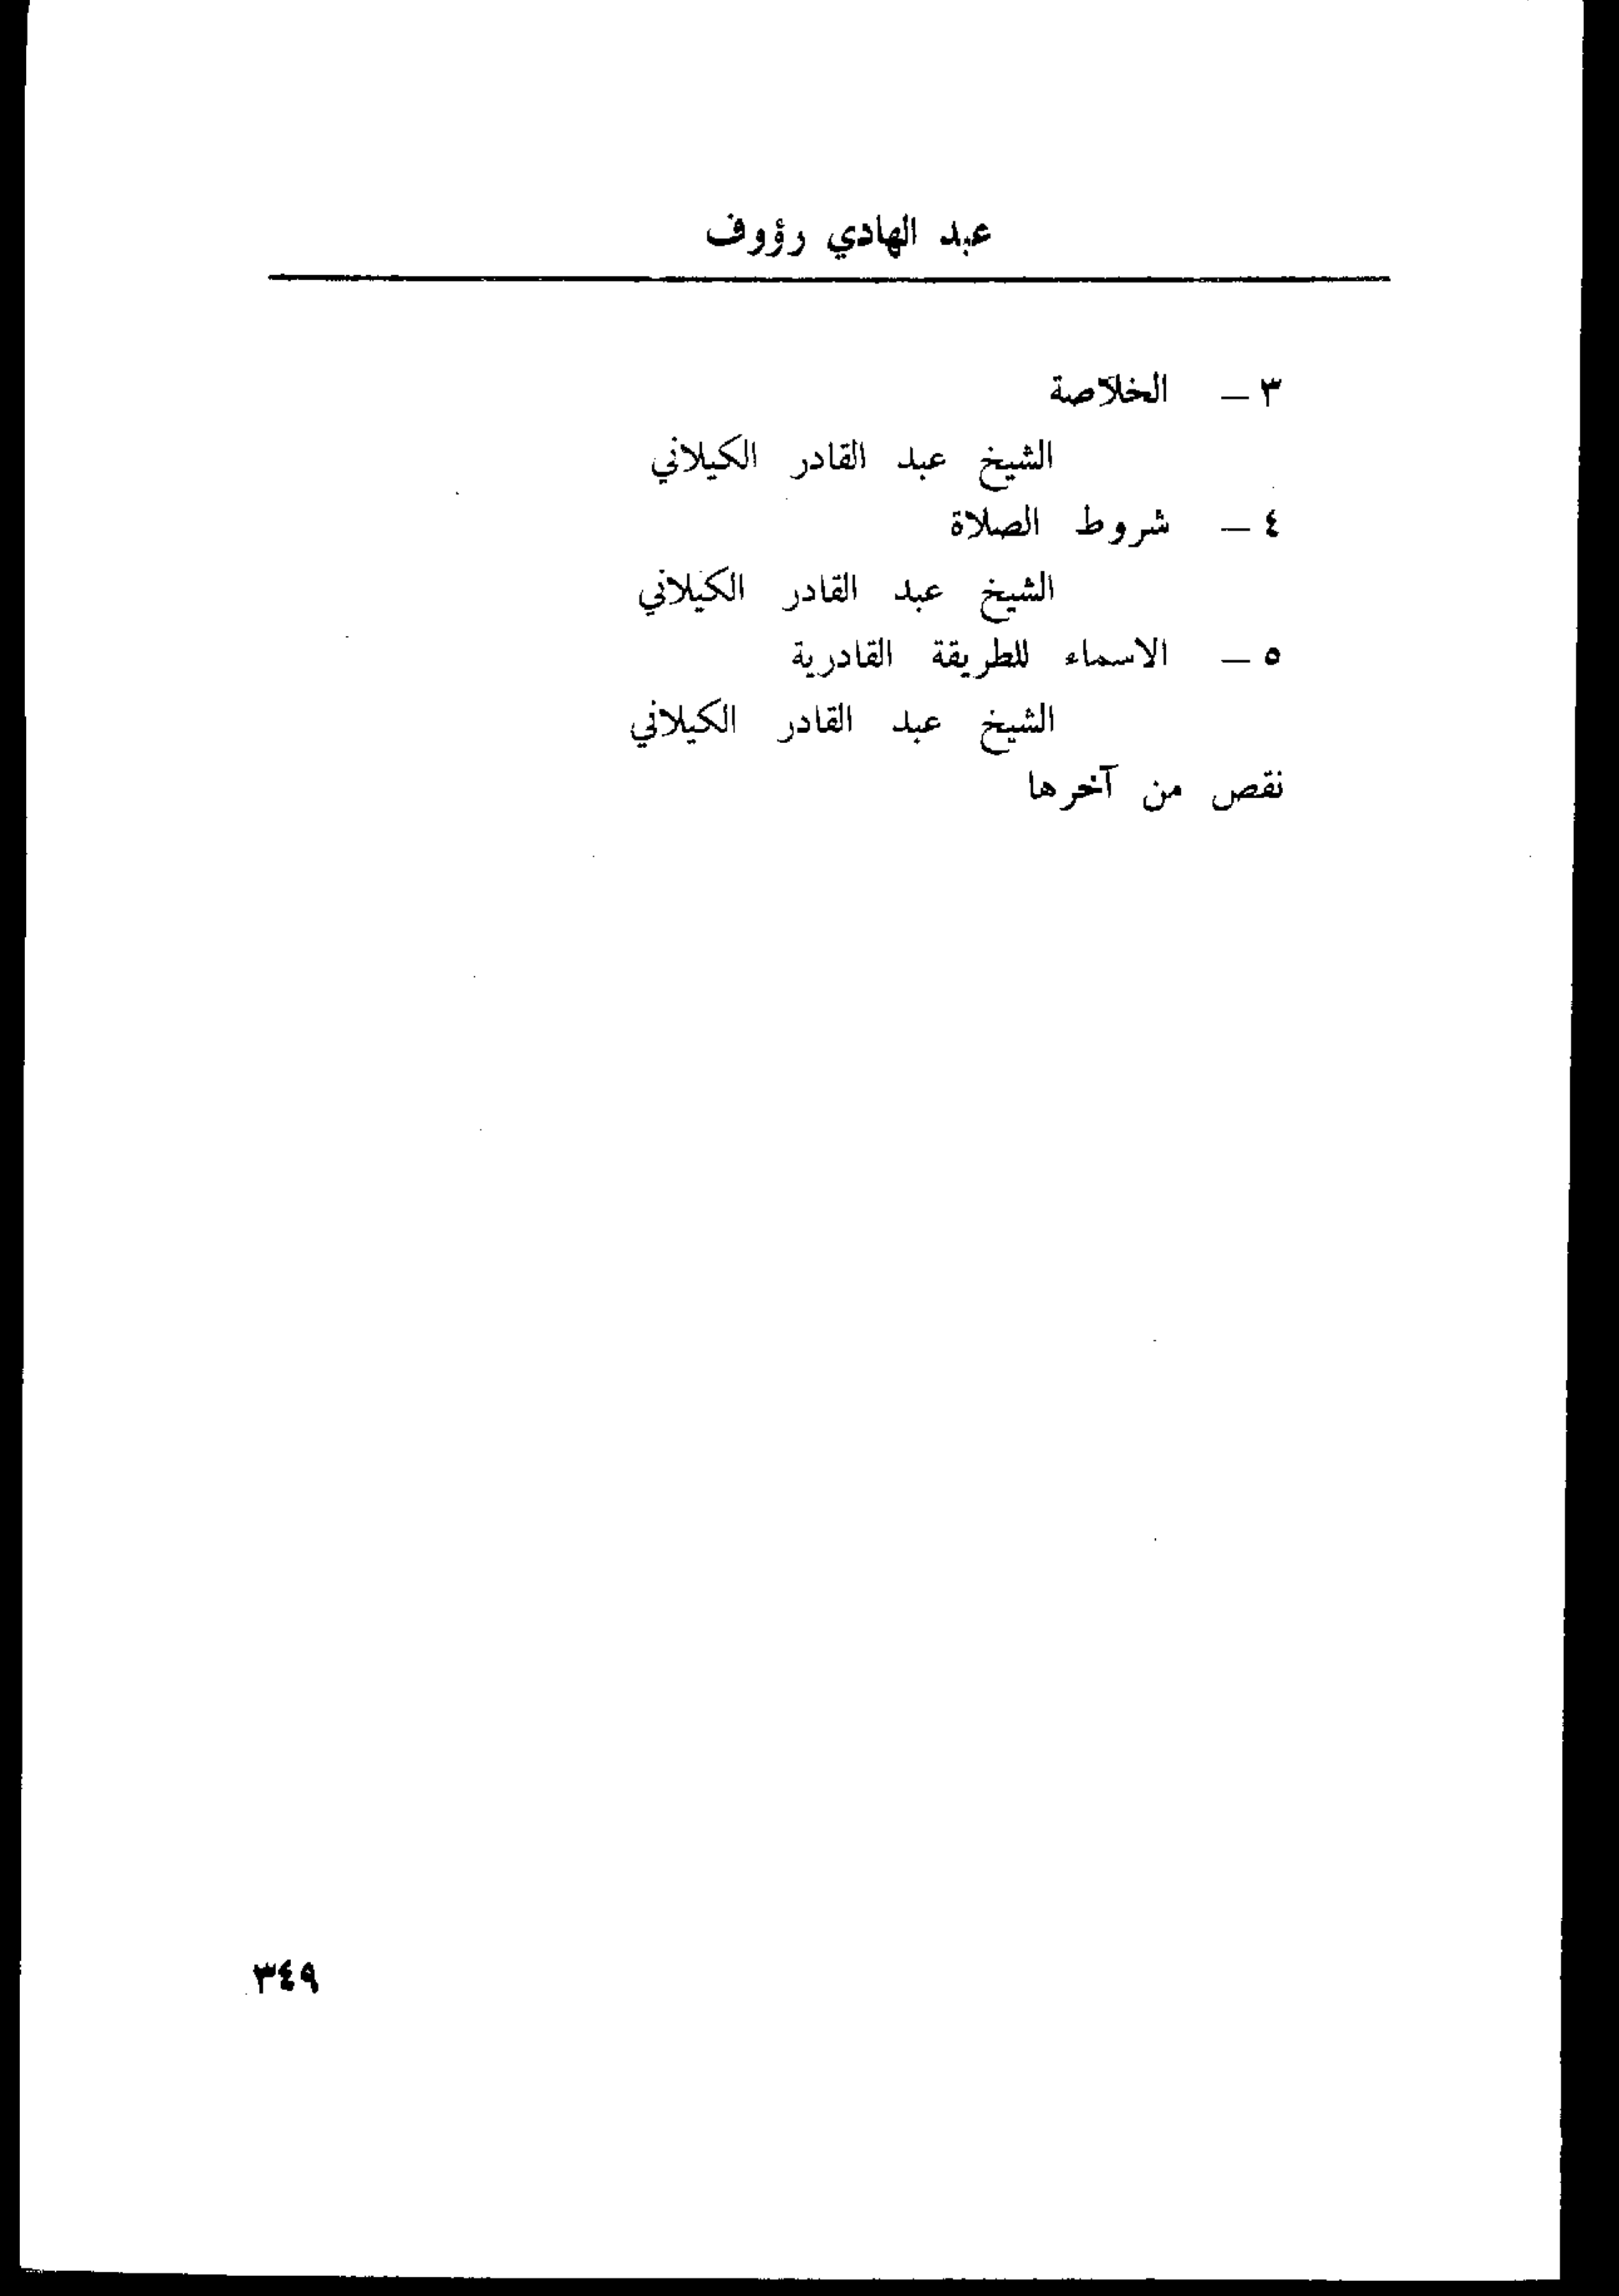 عبد الهادي رؤوف
٣ – الخلاصة
الشيخ عبد القادر الكيلاني
٤ – شروط الصلاة
الشيخ عبد القادر الكيلاني
٥ – الاسماء للطريقة القادرية
الشيخ عبد القادر الكيلاني
نقص من آخرها
٣٤٩